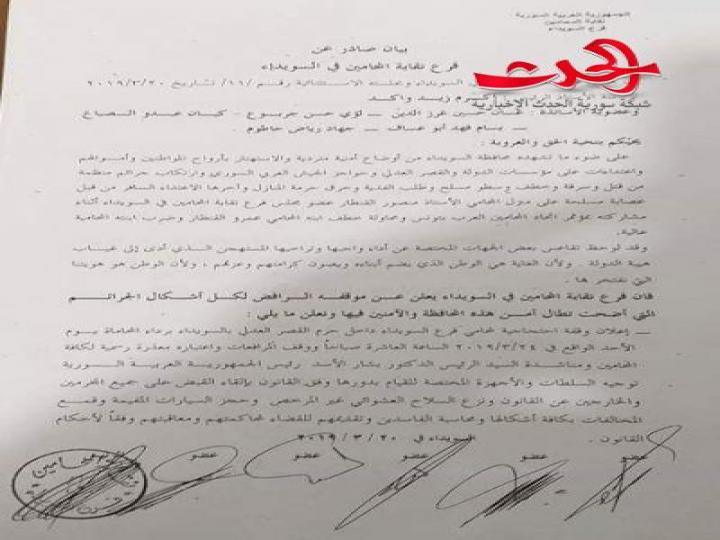 الجمهورية العربية السورية
نقابة المحامين
فرع السويداء
بيان صادر عن
فرع نقابة المحامين في السويداء
الحدث
شبكة سورية الحدث الإخبارية
السويداء بجلسته الاستثنائية رقم /١١/ تاريخ ٢٠١٩/٣/٢٠
أكرم زيد واكد
وعضوية الأساتذة : غسان حسين عز الدين – لؤي حسن جربوع – كيان عبدو الصباغ
– بسام فهد أبو عساف – جهاد رياض حاطوم
نحيّكم بتحية الحق والعروبة :
على ضوء ما تشهده محافظة السويداء من أوضاع أمنية متردية والاستهتار بأرواح المواطنين وأموالهم
واعتداءات على مؤسسات الدولة والقصر العدلي وحواجز الجيش العربي السوري وارتكاب جرائم منظمة
من قتل وسرقة وخطف وسطو مسلح وطلب الفدية وخرق حرمة المنازل وآخرها الاعتداء السافر من قبل
عصابة مسلحة على منزل المحامي الأستاذ منصور القنطار عضو مجلس فرع نقابة المحامين في السويداء أثناء
مشاركته بمؤتمر اتحاد المحامين العرب بتونس ومحاولة خطف ابنه المحامي عمرو القنطار وضرب ابنته المحامية
عالية.
وقد لوحظ تقاعس بعض الجهات المختصة عن أداء واجبها وتراخيها المستهجن الـذي أدى إلى غيـاب
هيبة الدولة . ولأن الغاية هي الوطن الذي يضم أبناءه ويصون كرامتهم وعزتهم ، ولأن الوطن هو هويتنا
التي نفتخر بها .
فإن فرع نقابة المحامين في السويداء يعلن عـن موقفـه الـرافض لكـل أشكـال الجرائـم
التي أضحت تطال أمـن هذه المحافظة والآمنين فيها ونعلن ما يلي :
– إعلان وقفة احتجاجية لمحامي فرع السويداء داخل حرم القصر العدلي بالسويداء برداء المحاماة يـوم
الأحد الواقع في ٢٠١٩/٣/٢٤ الساعة العاشرة صباحاً ووقف المرافعات واعتباره معذرة رسمية لكافة
المحامين ومناشدة السيد الرئيس الدكتور بشار الأسد رئيس الجمهوريـة العربيـة الـسورية
توجيه السلطات والأجهزة المختصة للقيام بدورها وفق القانون بإلقاء القبض على جميع المجرمين
والخارجين عن القانون ونزع السلاح العشوائي غير المرخص وحجز السيارات المفيمة وقمـع
المخالفات بكافة أشكالها ومحاسبة الفاسدين وتقديمهم للقضاء لمحاكمتهم ومعاقبتهم وفقاً لأحكام
القانون . السويداء في ٢٠ / ٣ / ٢٠١٩
عضو عضو عضو عضو عضو